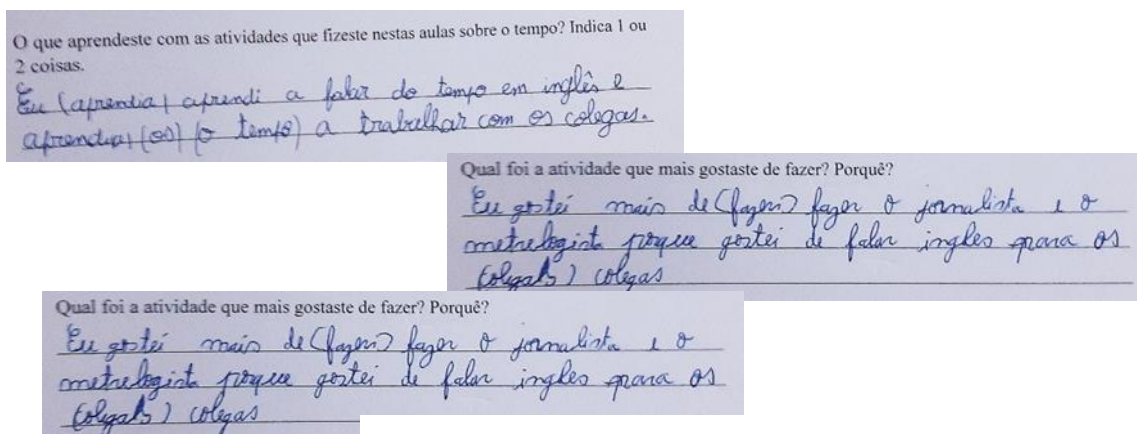 O que aprendeste com as atividades que fizeste nestas aulas sobre o tempo? Indica 1 ou
2 coisas.
Eu (aprendia) aprendi a falar do tempo em inglês e
aprendia) (os) (o tempo) a trabalhar com os colegas.
Qual foi a atividade que mais gostaste de fazer? Porquê?
Eu gostei mais de (fazeri) fazer o jornalista e o
metrelogista porque gostei de falar ingles para os
(colegals) colegas
Qual foi a atividade que mais gostaste de fazer? Porquê?
Eu gostei mais de (fazeri) fazer o jornalista e o
metrelogista porque gostei de falar ingles para os
(colegals) colegas